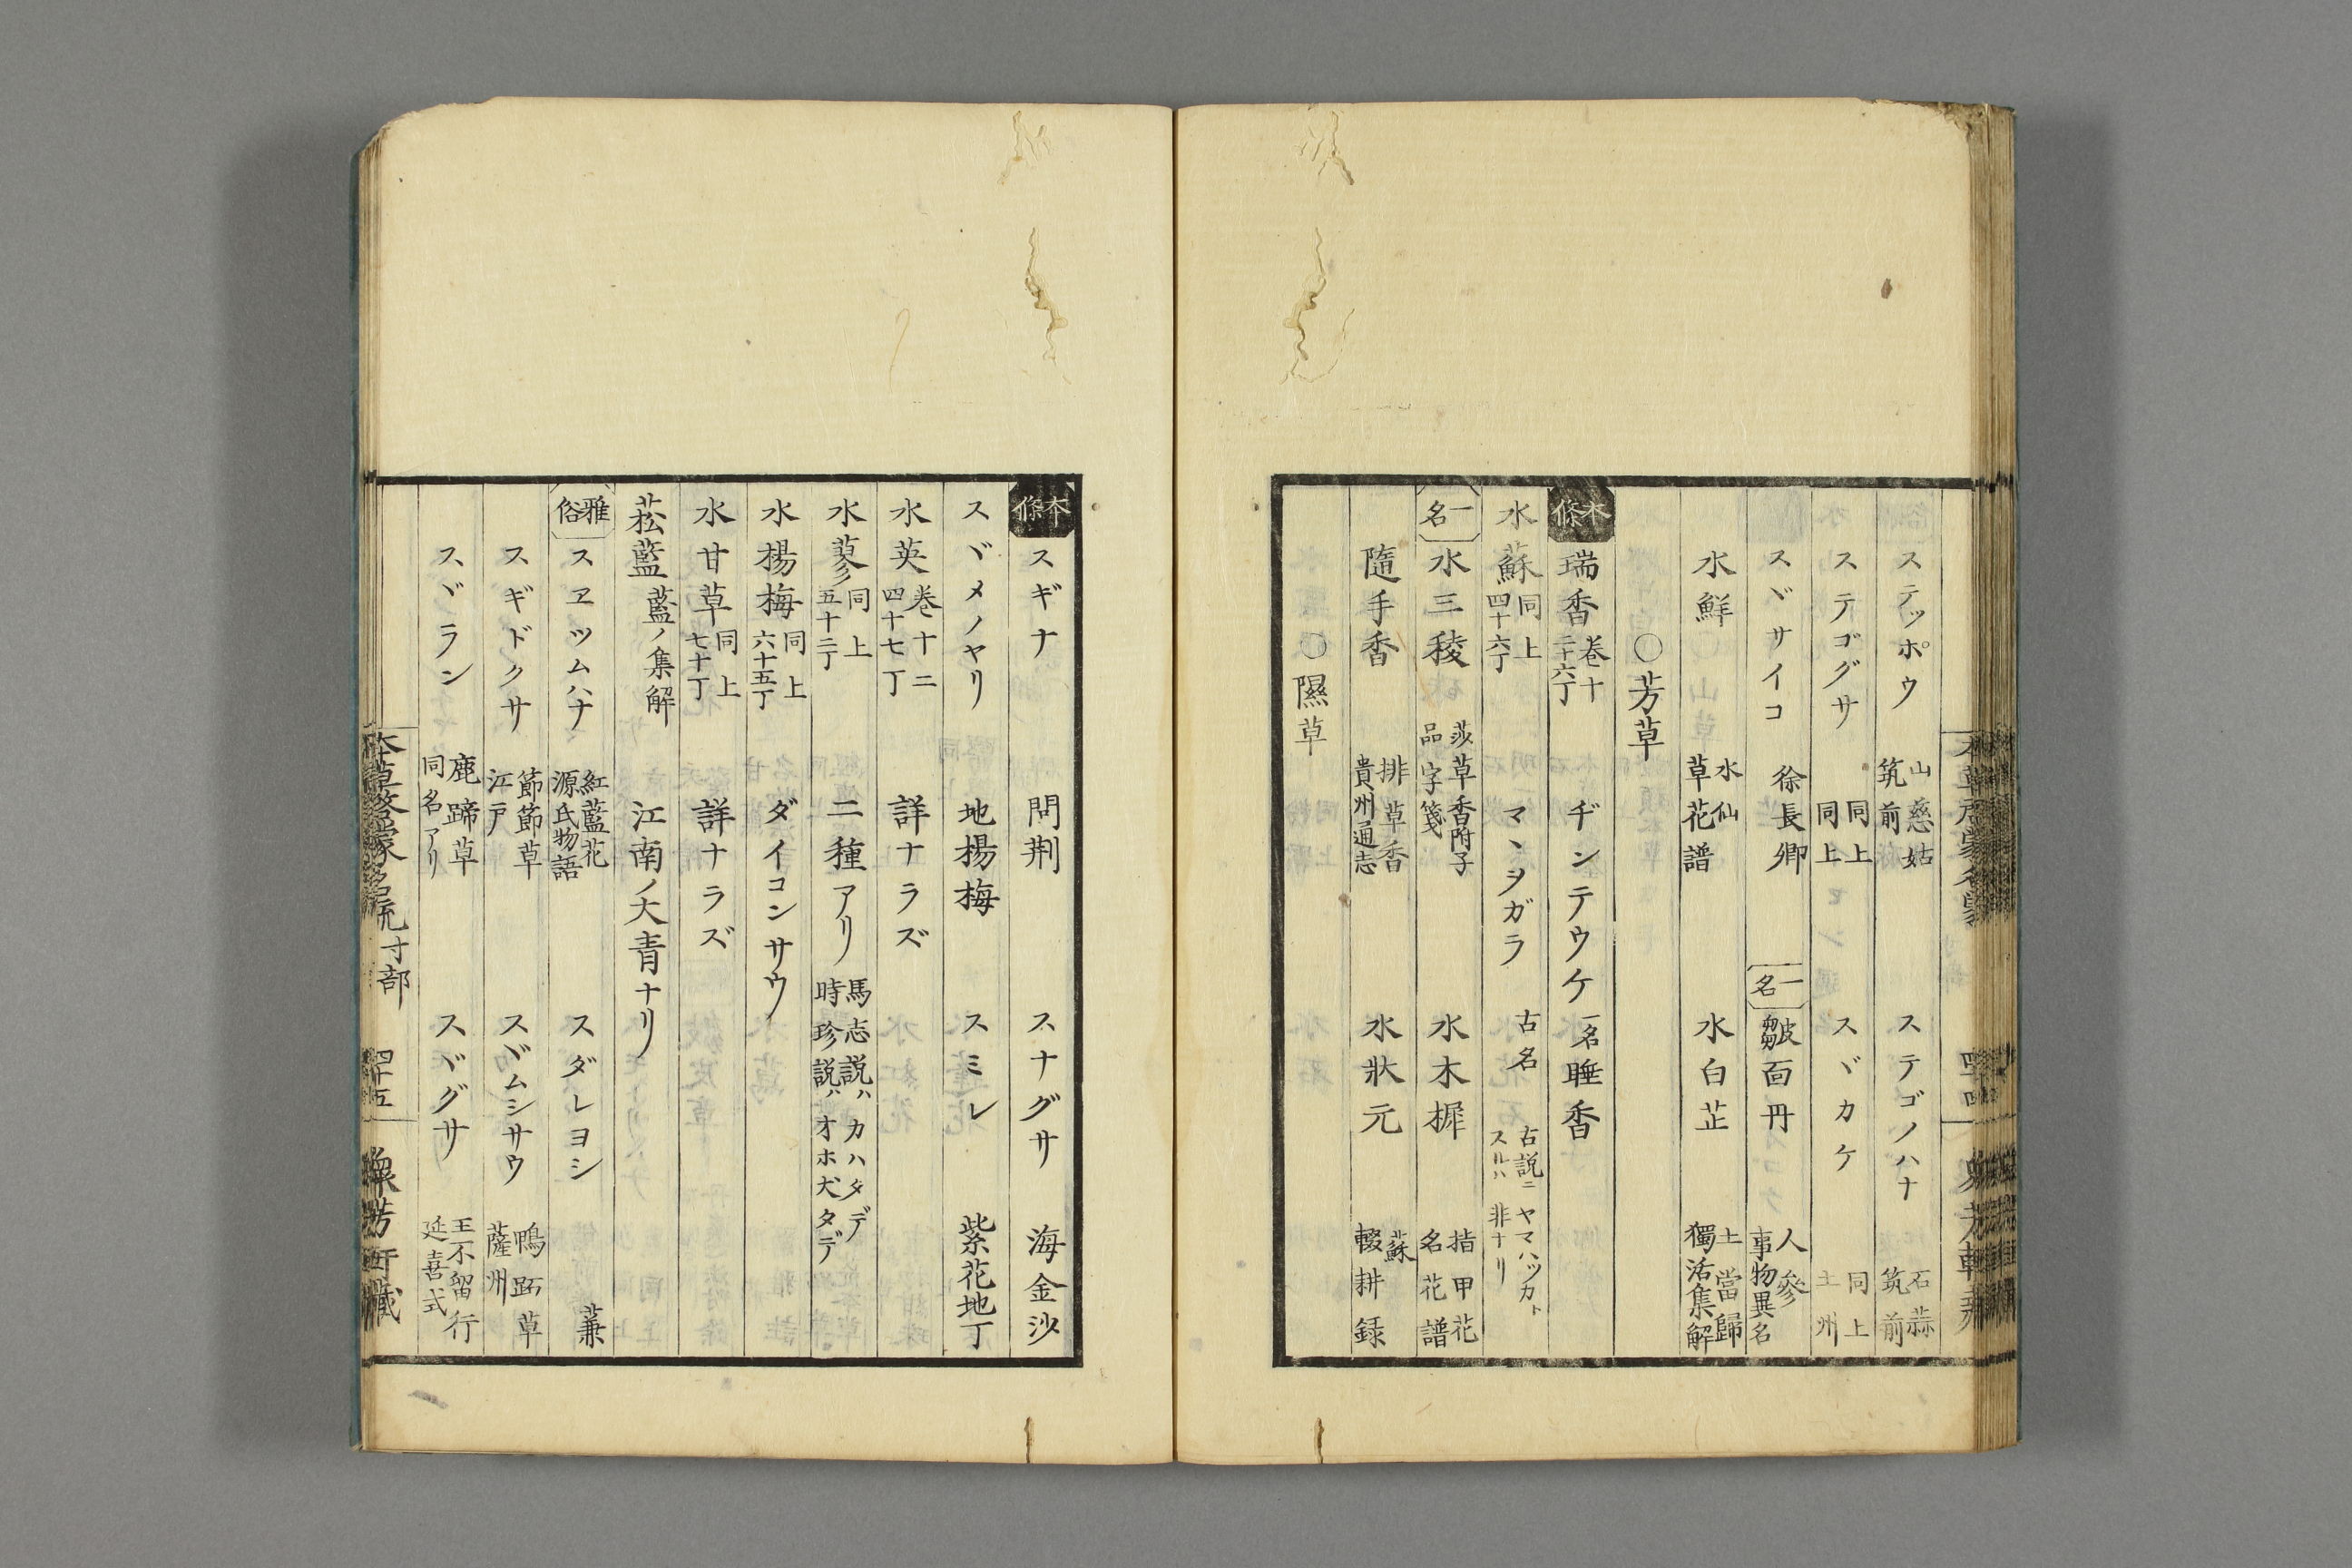 ステッポウ 山慈姑 筑前 ステゴノハナ 石蒜 筑前
ステゴグサ 同上 同上 スヾカケ 同上 土州
スヾサイコ 徐長卿 一名 皺面丹 人參 事物異名
水鮮 水仙 草花譜 水白芷 土當歸 獨活集解
〇芳草
本條 瑞香 卷十 二十六丁 ヂンテウケ 一名 睡香
水蘇 同上 四十六丁 マヽヲガラ 古名 古説ニヤマハッカト スルハ非ナリ
一名 水三稜 莎草香附子 品字箋 水木樨 指甲花 名花譜
隨手香 排草香 貴州通志 水狀元 蘇 輟耕録
〇隰草
本條 スギナ 問荆 スナグサ 海金沙
スヾメノヤリ 地楊梅 スミレ 紫花地丁
水英 卷十二 四十七丁 詳ナラズ
水蓼 同上 五十二丁 二種アリ 馬志説ハカハタデ 時珍説ハオホ犬タデ
水楊梅 同上 六十五丁 ダイコンサウ
水甘草 同上 七十丁 詳ナラズ
菘藍 藍ノ集解 江南ノ大青ナリ
雅俗 スヱツムハナ 紅藍花 源氏物語 スダレヨシ 蒹
スギドクサ 節節草 江戸 スヾムシサウ 鴨跖草 薩州
スヾラン 鹿蹄草 同名アリ スヾグサ 王不留行 延喜式
本草啓蒙名疏 寸部 四十五 衆芳軒藏